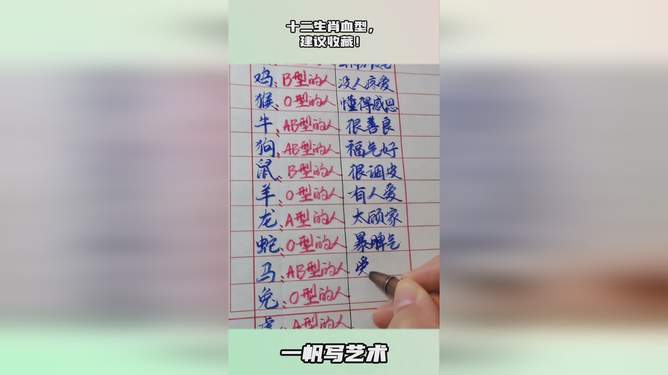 十二生肖血型，
建议收藏！
鸡、B型的人 没人疼爱
猴、O型的人 懂得感恩
牛、AB型的人 很善良
狗、AB型的人 福气好
鼠、B型的人 很调皮
羊、O型的人 有人爱
龙、A型的人 太顾家
蛇、O型的人 暴脾气
马、AB型的人
兔、O型的人
虎、A型的人
一帆写艺术